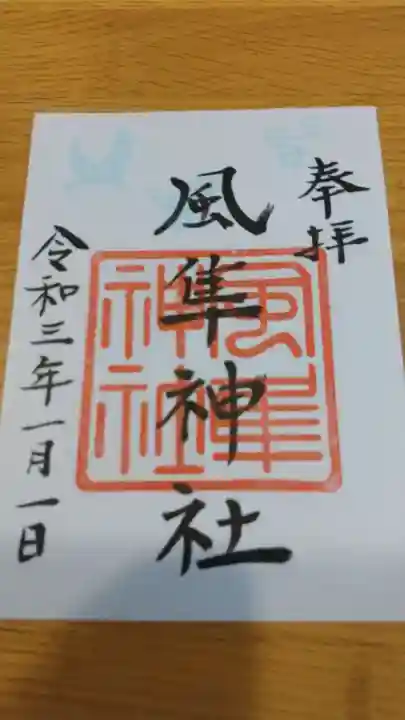 奉拝
風隼神社
風隼
神社
令和三年一月一日